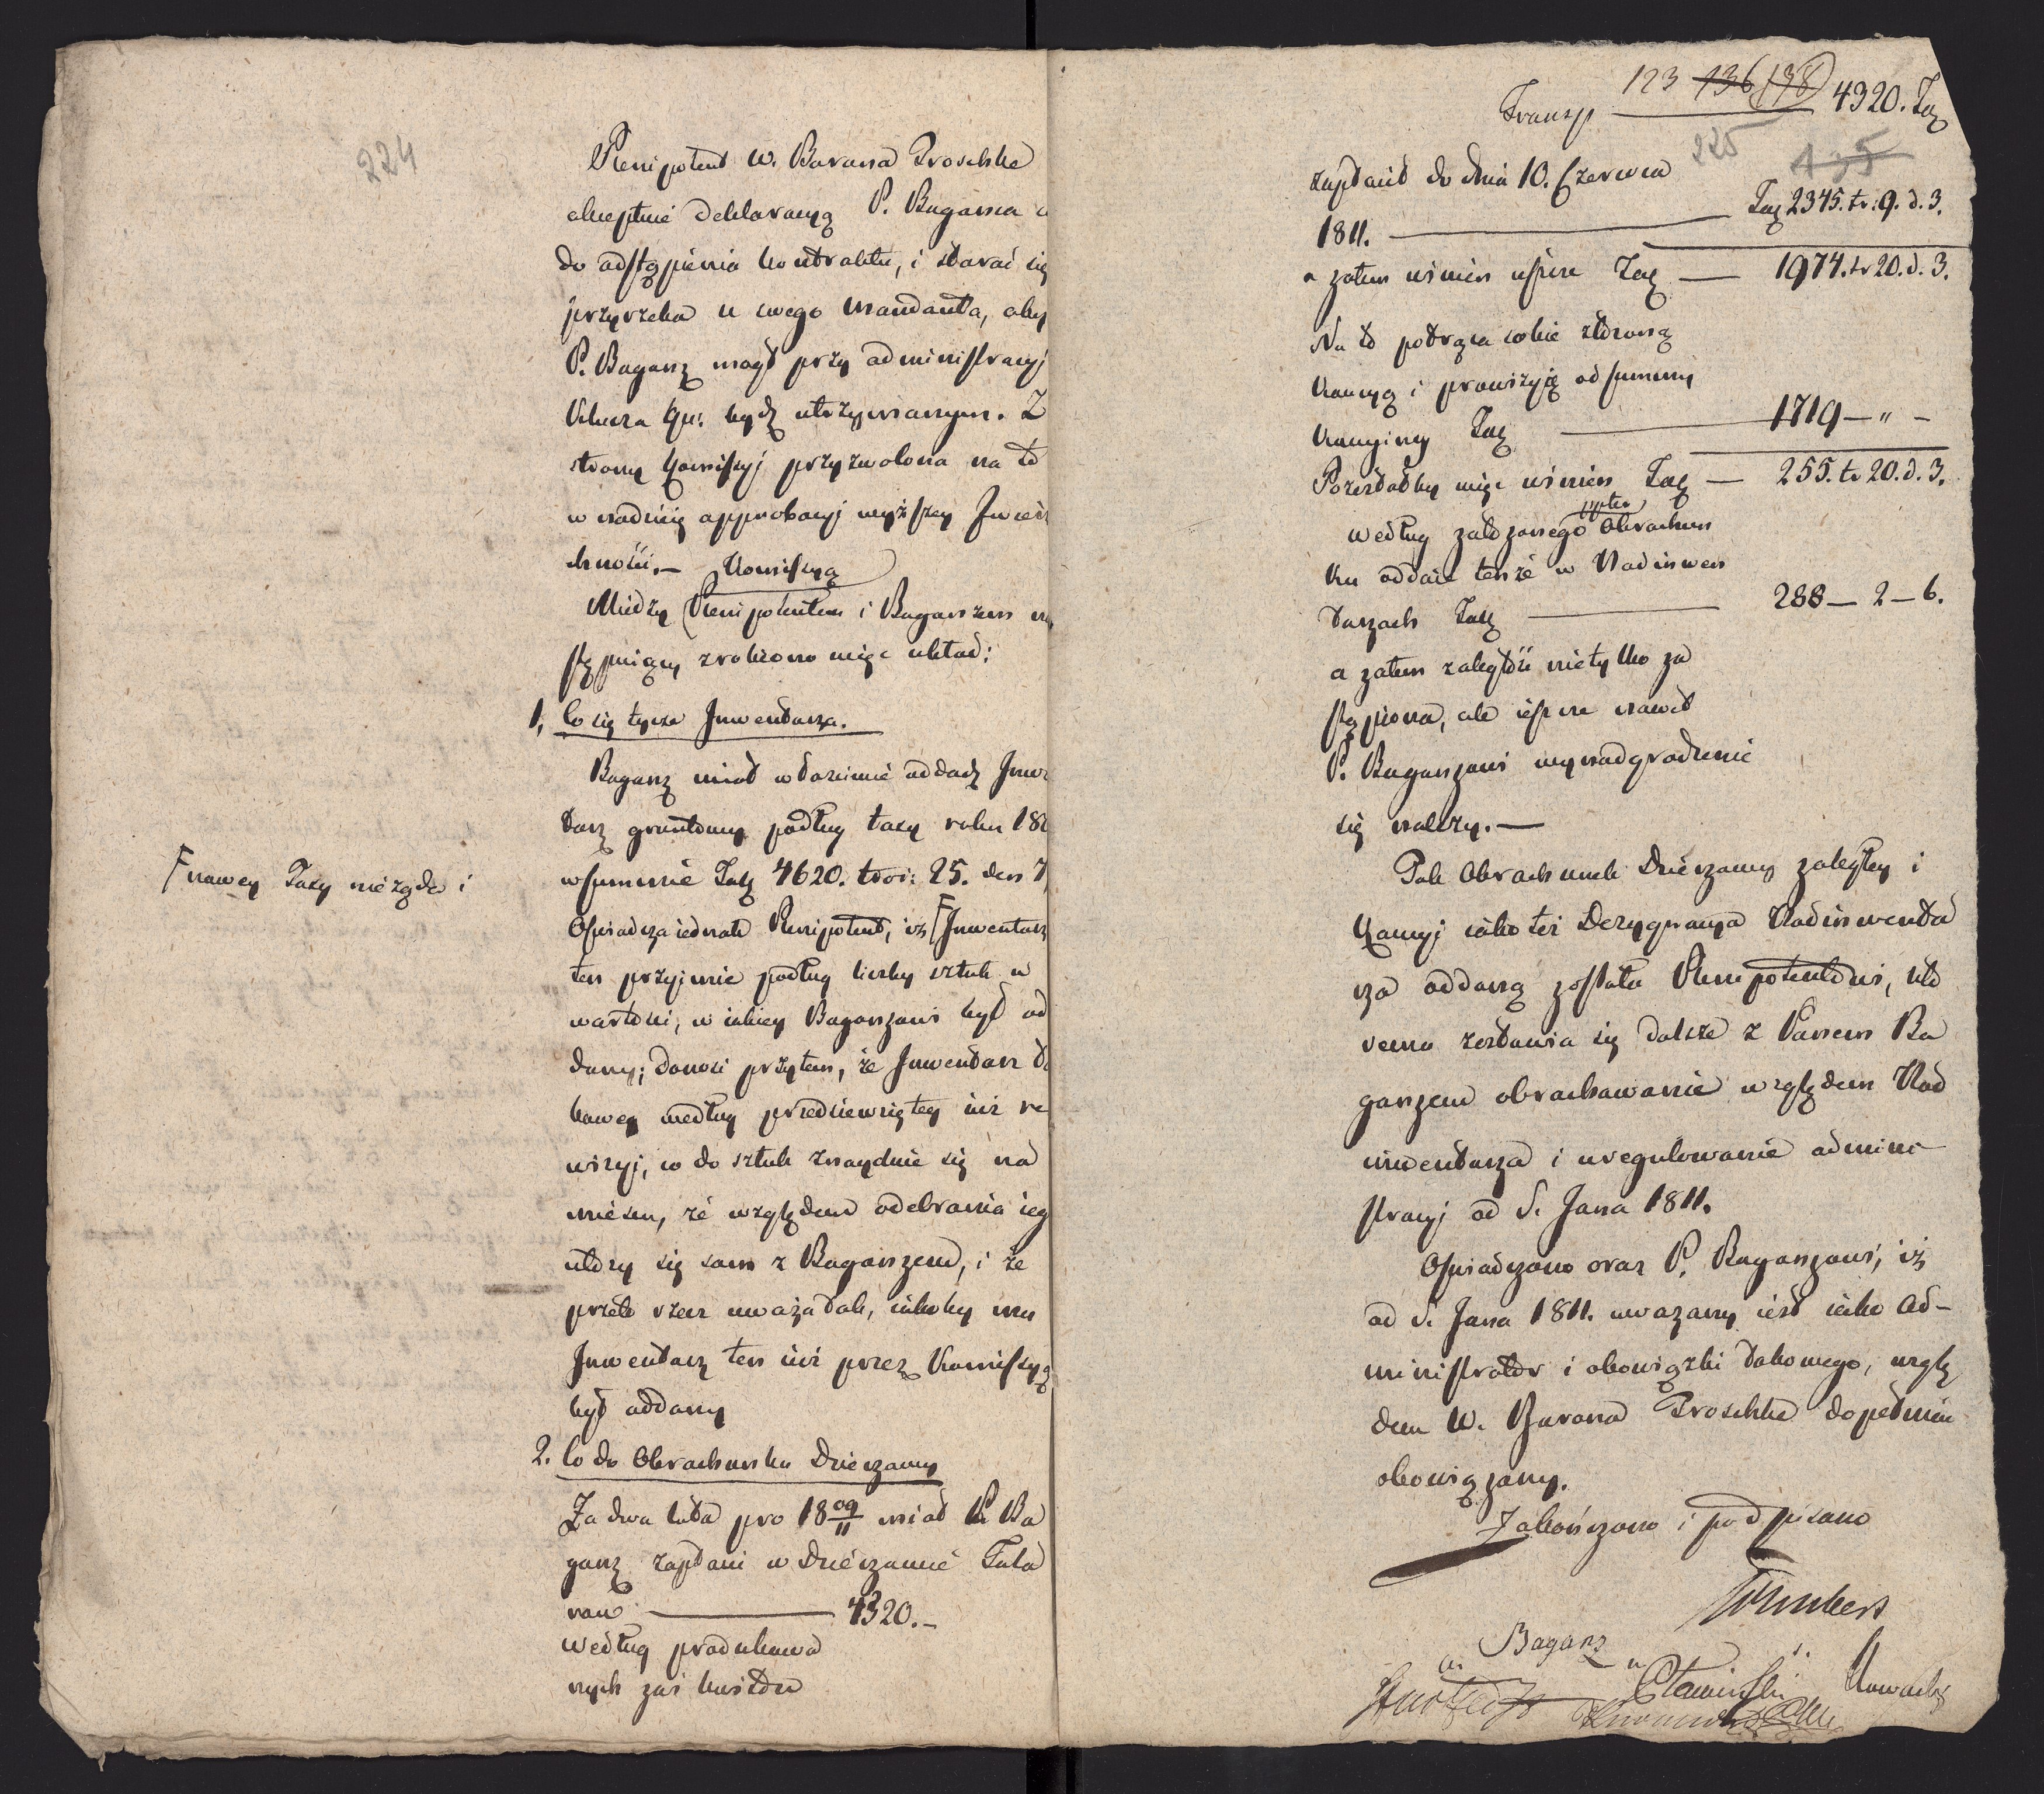 224
Plenipotent W. Barona Troschke
akceptuie deklaracyą P. Bagansa
do odstąpienia kontraktu, i starać się
przyrzeka u swego Mandanta, aby
P. Bagansz mogł przy administracyj
Klucza qu: bydź utrzymanym. Z
strony Komissyj przyzwolona na to
w nadzieię approbacyj wyższey Zwierz
chności. — Komissyą
Między Plenipotentem i Baganszem na
stępuiący zrobiono więc układ:
1, Co się tycze Inwentarza.
Bagansz miał w Terminie oddadź Inwe
tarz gruntowy podług taxy roku 18
w summie Tal 4620. troi: 25. den 7
⌈ nowey Taxy niezgda i
Oświadcza iednak Plenipotent, iż ⌈ Inwentarz
ten przyjmie podług liczby sztuk i
wartości, w iakiey Baganszowi był od
dany; donosi przytem, że Inwentarz ta
kowey według przedsiewziętey iuż re
wizyj, co do sztuk znayduie się na
miescu, że względem odebrania ieg
ułoży się sam z Baganszem, i że
przeto rzecz uważa tak, iakoby mu
Inwentarz ten iuż przez Komissyą
był oddany
2. Co do Obrachunku Dzierzawy
Za dwa lata pro 18 09/11 miał P. Ba
gansz zapłacić w Dzierzawie Tala
row — 4320. —
według produkowa
nych zaś kwitow
123 136 138
Transp — 4320. Tal
225 135
zapłacił do dnia 10. Czerwca
1811. — Tal 2345. tr: 9. d. 3.
a zatem winien ieszcze Tal — 1974. tr 20. d. 3.
Na to potrąca sobie złożoną
Kaucyą i prowizyję od summy
Kaucyiney Tal — 1719 — " —
Pozostałby więc winien Tal — 255. tr 20. d. 3.
według załączonego Obrachun
ku oddaie tenże w Nadinwen
tarzach Tal — 288 — 2 — 6.
a zatem zaległość nietylko za
stąpiona, ale ieszcze nawet
P. Baganszowi wynadgrodzenie
się należy. —
Tak Obrachunek Dzierzawy zaległey i
Kaucyj iako też Dezygnacya Nadinwenta
rza oddaną została Plenipotentowi, kto
remu zostawia się dalsze z Panem Ba
ganszem obrachowanie względem Nad
inwentarza i uregulowanie admini
stracyj od S. Jana 1811.
Oświadczono oraz P. Baganszowi, iż
od S. Jana 1811. uwazany iest iako Ad-
ministrator i obowiązki takowego, wzglę
dem W. Barona Troschke dopełniać
obowiązany.
Zakończono i podpisano
Bagans